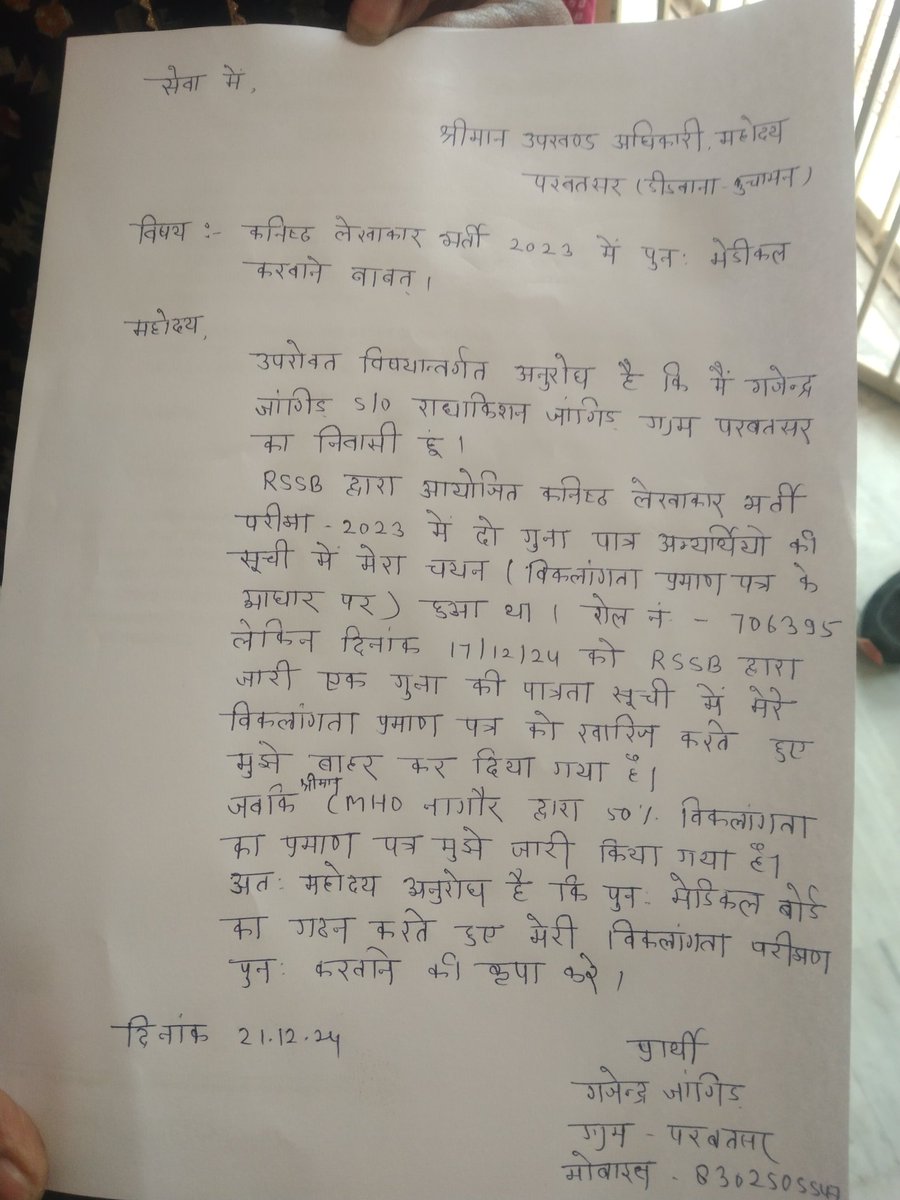 सेवा में,
श्रीमान उपखण्ड अधिकारी, महोदय
परबतसर (डीडवाना-कुचामन)
विषय :- कनिष्ठ लेखाकार भर्ती 2023 में पुनः मेडीकल
करवाने बाबत्।
महोदय,
उपरोक्त विषयान्तर्गत अनुरोध है कि मैं गजेन्द्र
जांगिड़ S/O राधाकिशन जांगिड़ ग्राम परबतसर
का निवासी हूं।
RSSB द्वारा आयोजित कनिष्ठ लेखाकार भर्ती
परीक्षा-2023 में दो गुना पात्र अभ्यर्थियो की
सूची में मेरा चयन (विकलांगता प्रमाण पत्र के
आधार पर) हुआ था। रोल नं - 706395
लेकिन दिनांक 17/12/24 को RSSB द्वारा
जारी एक गुना की पात्रता सूची में मेरे
विकलांगता प्रमाण पत्र को खारिज करते हुए
मुझे बाहर कर दिया गया है।
जबकि श्रीमान CMHO नागौर द्वारा 50% विकलांगता
का प्रमाण पत्र मुझे जारी किया गया है।
अतः महोदय अनुरोध है कि पुनः मेडिकल बोर्ड
का गठन करते हुए मेरी विकलांगता परीक्षण
पुनः करवाने की कृपा करे।
दिनांक 21.12.24
प्रार्थी
गजेन्द्र जांगिड़
ग्राम - परबतसर
मोबाइल -